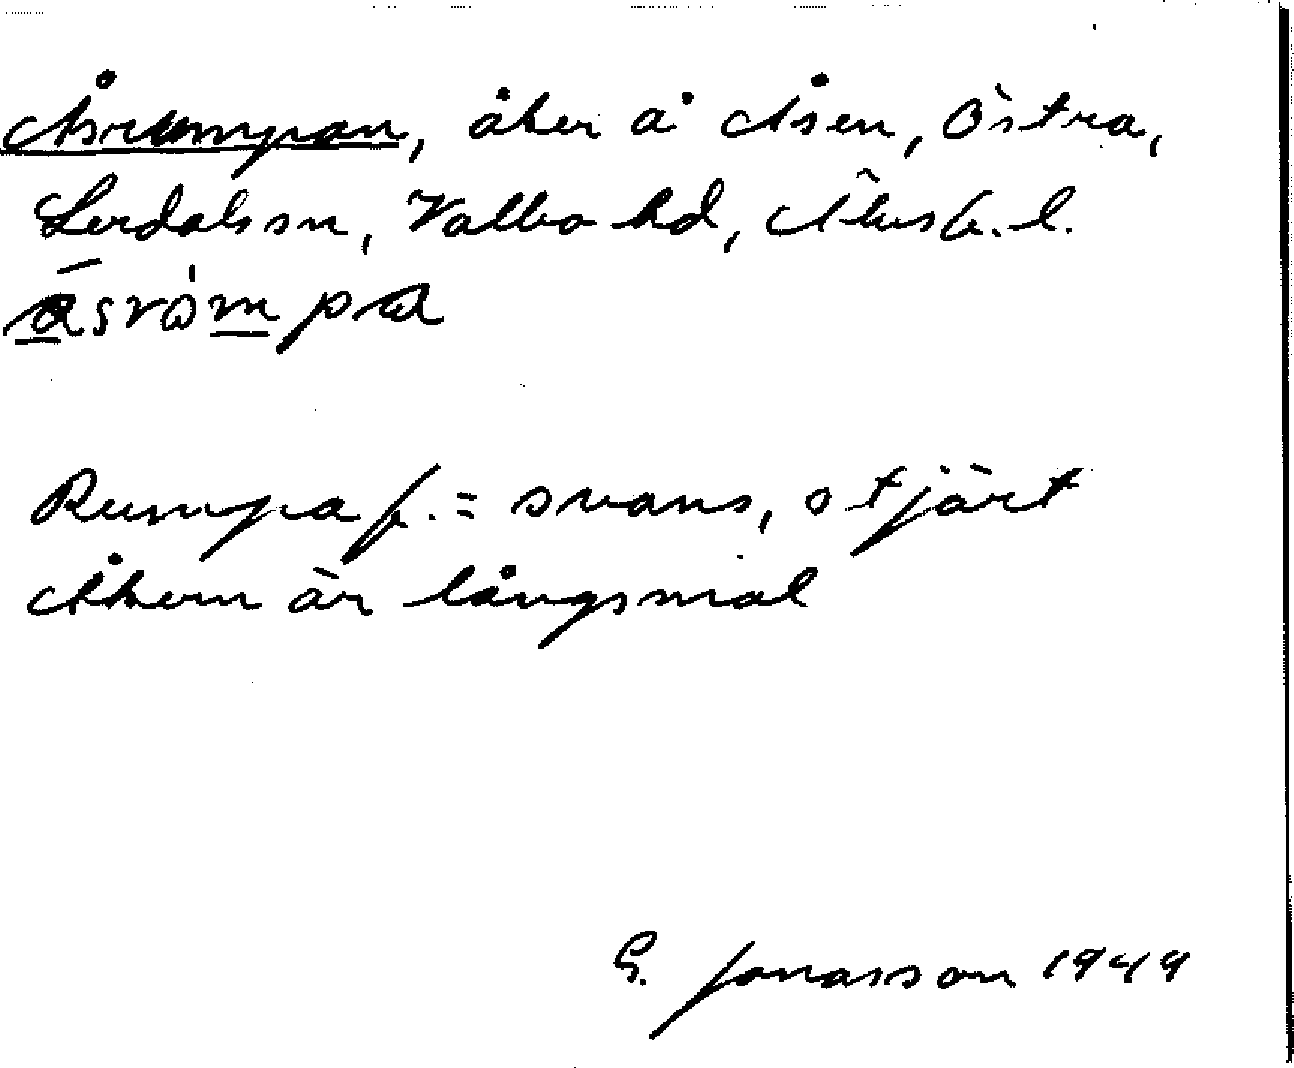 Åsrumpan, åker å Åsen, Östra,
Lerdals sn, Valbo hd, Älvsb. l.
åsròmpa
Rumpa f. = svans, stjärt
Åkern är långsmal
G. Jonasson 1949